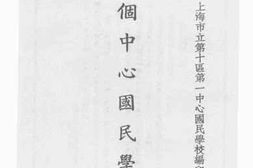 上海市立第十區第一中心國民學校編
個中心國民學